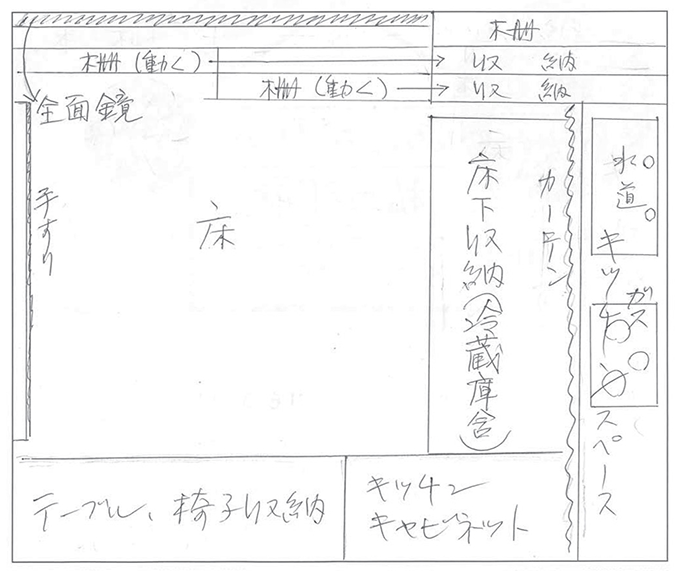 棚
棚(動く)
収 納
棚(動く)
収 納
全面鏡
手すり
床
床下収納(冷蔵庫含)
カーテン
水道
キッチンスペース
ガス
テーブル、椅子収納
キッチン
キャビネット